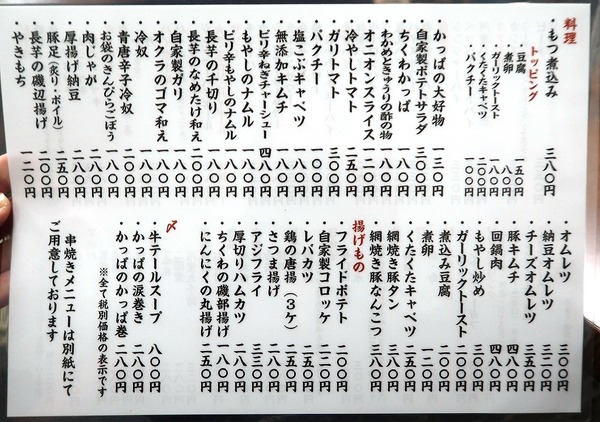 料理
・もつ煮込み 三八〇円
トッピング
・豆腐 一五〇円
・煮卵 八〇円
・ガーリックトースト 一八〇円
・くたくたキャベツ 二〇〇円
・パクチー 一〇〇円
・かっぱの大好物 一三〇円
・自家製ポテトサラダ 三〇〇円
・ちくわかっぱ 一八〇円
・わかめときゅうりの酢の物 一八〇円
・オニオンスライス 一二〇円
・冷やしトマト 二五〇円
・ガリトマト 三〇〇円
・パクチー 一〇〇円
・塩こぶキャベツ 一八〇円
・無添加キムチ 一八〇円
・ピリ辛ねぎチャーシュー 四八〇円
・もやしのナムル 一八〇円
・ピリ辛もやしのナムル 一八〇円
・長芋の千切り 一八〇円
・長芋のなめたけ和え 二〇〇円
・自家製ガリ 一八〇円
・オクラのゴマ和え 一八〇円
・冷奴 一八〇円
・青唐辛子冷奴 二〇〇円
・お袋のきんぴらごぼう 一八〇円
・肉じゃが 二八〇円
・厚揚げ納豆 二五〇円
・豚足(炙り・ボイル) 二八〇円
・長芋の磯辺揚げ 二〇〇円
・やきもち 一二〇円
・オムレツ 三〇〇円
・納豆オムレツ 三二〇円
・チーズオムレツ 三五〇円
・豚キムチ 四八〇円
・回鍋肉 四八〇円
・もやし炒め 三〇〇円
・ガーリックトースト 二〇〇円
・煮込み豆腐 三〇〇円
・煮卵 一二〇円
・くたくたキャベツ 二五〇円
・網焼き豚タン 三八〇円
・網焼き豚なんこつ 三八〇円
揚げもの
・フライドポテト 二〇〇円
・自家製コロッケ 二二〇円
・レバカツ 二五〇円
・鶏の唐揚(3ケ) 二五〇円
・さつま揚げ 二八〇円
・アジフライ 三三〇円
・厚切りハムカツ 二五〇円
・ちくわの磯部揚げ 一八〇円
・にんにくの丸揚げ 二五〇円
〆
・牛テールスープ 八〇〇円
・かっぱの涙巻き 二八〇円
・かっぱのかっぱ巻 二八〇円
※全て税別価格の表示です
串焼きメニューは別紙にて
ご用意しております